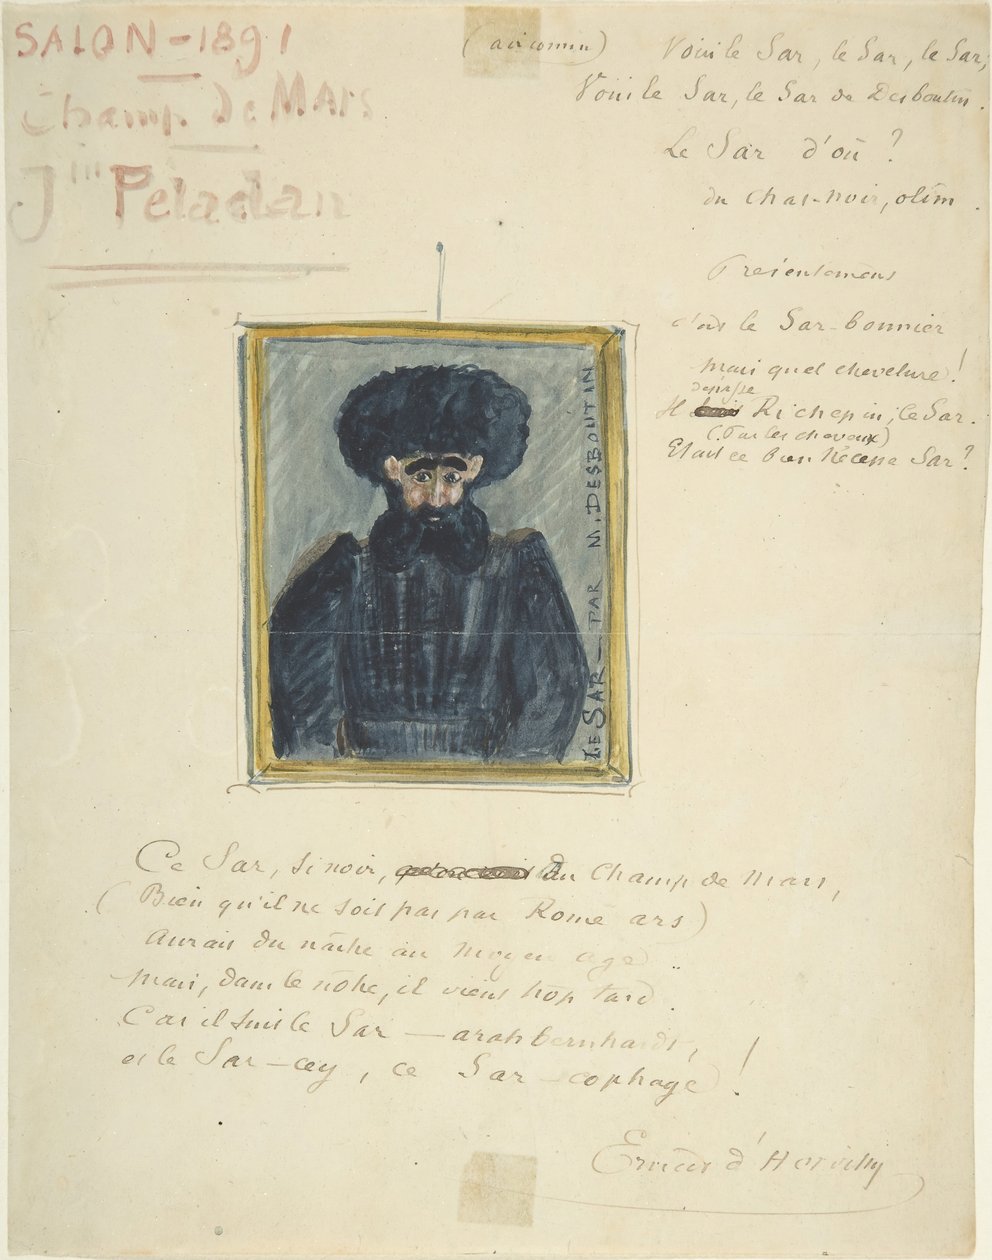 SALON - 1891
Champ de MArs
Jin Peladan
(air connu)
Voici le Sar, le Sar, le Sar;
Voici le Sar, le Sar de Desboutin.
Le Sar d'où ?
du Chat-noir, olim.
Présentement
c'est le Sar-bonnier
mais quel chevelure !
dépasse
Il Richepin, ce Sar.
(Par les cheveux)
Etait ce bien Nécesse Sar ?
LE SAR - PAR M. DESBOUTIN
Ce Sar, si noir, du Champ de Mars,
(Bien qu'il ne soit pas par Rome ars)
Aurait du naître au Moyen age ..
Mais, dans le nôtre, il vient trop tard .
Car il suit le Sar — arah bernhardt,
et le Sar - cey, ce Sar - cophage !
Ernest d'Hervilly